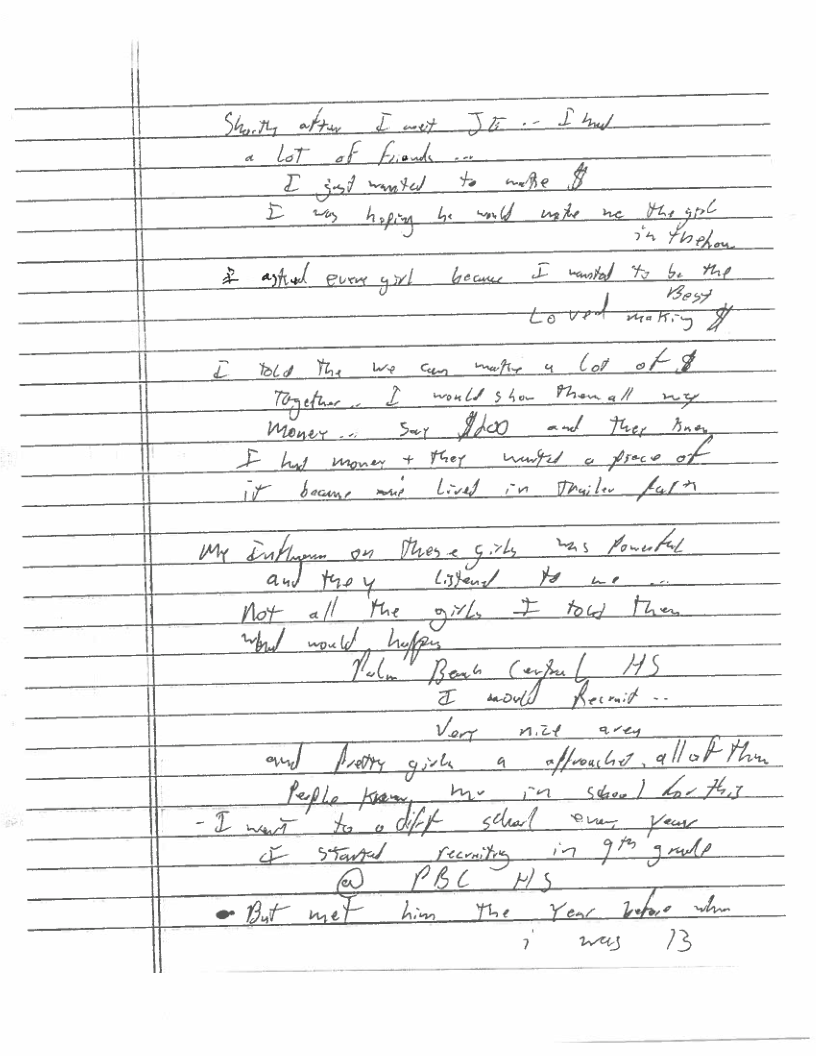 Shortly after I met JE -- I had
a lot of friends ...
I just wanted to make $
I was hoping he would make me the girl
in the
I asked every girl because I wanted to be the
Best
Loved making $
I told the we can make a lot of $
Together .. I would show them all my
Money ... Say $ and they knew
I had money + they wanted a piece of
it because lived in Trailer Park
My Influence on these girls was Powerful
and they listened to me ...
Not all the girls I told them
what would happen
Palm Beach Central HS
I would Recruit --
Very nice area
and Pretty girls a approached, all of them
People knew me in school for this
- I went to a diff school every year
I started recruiting in 9th grade
@ PBC HS
• But met him the Year before when
i was 13